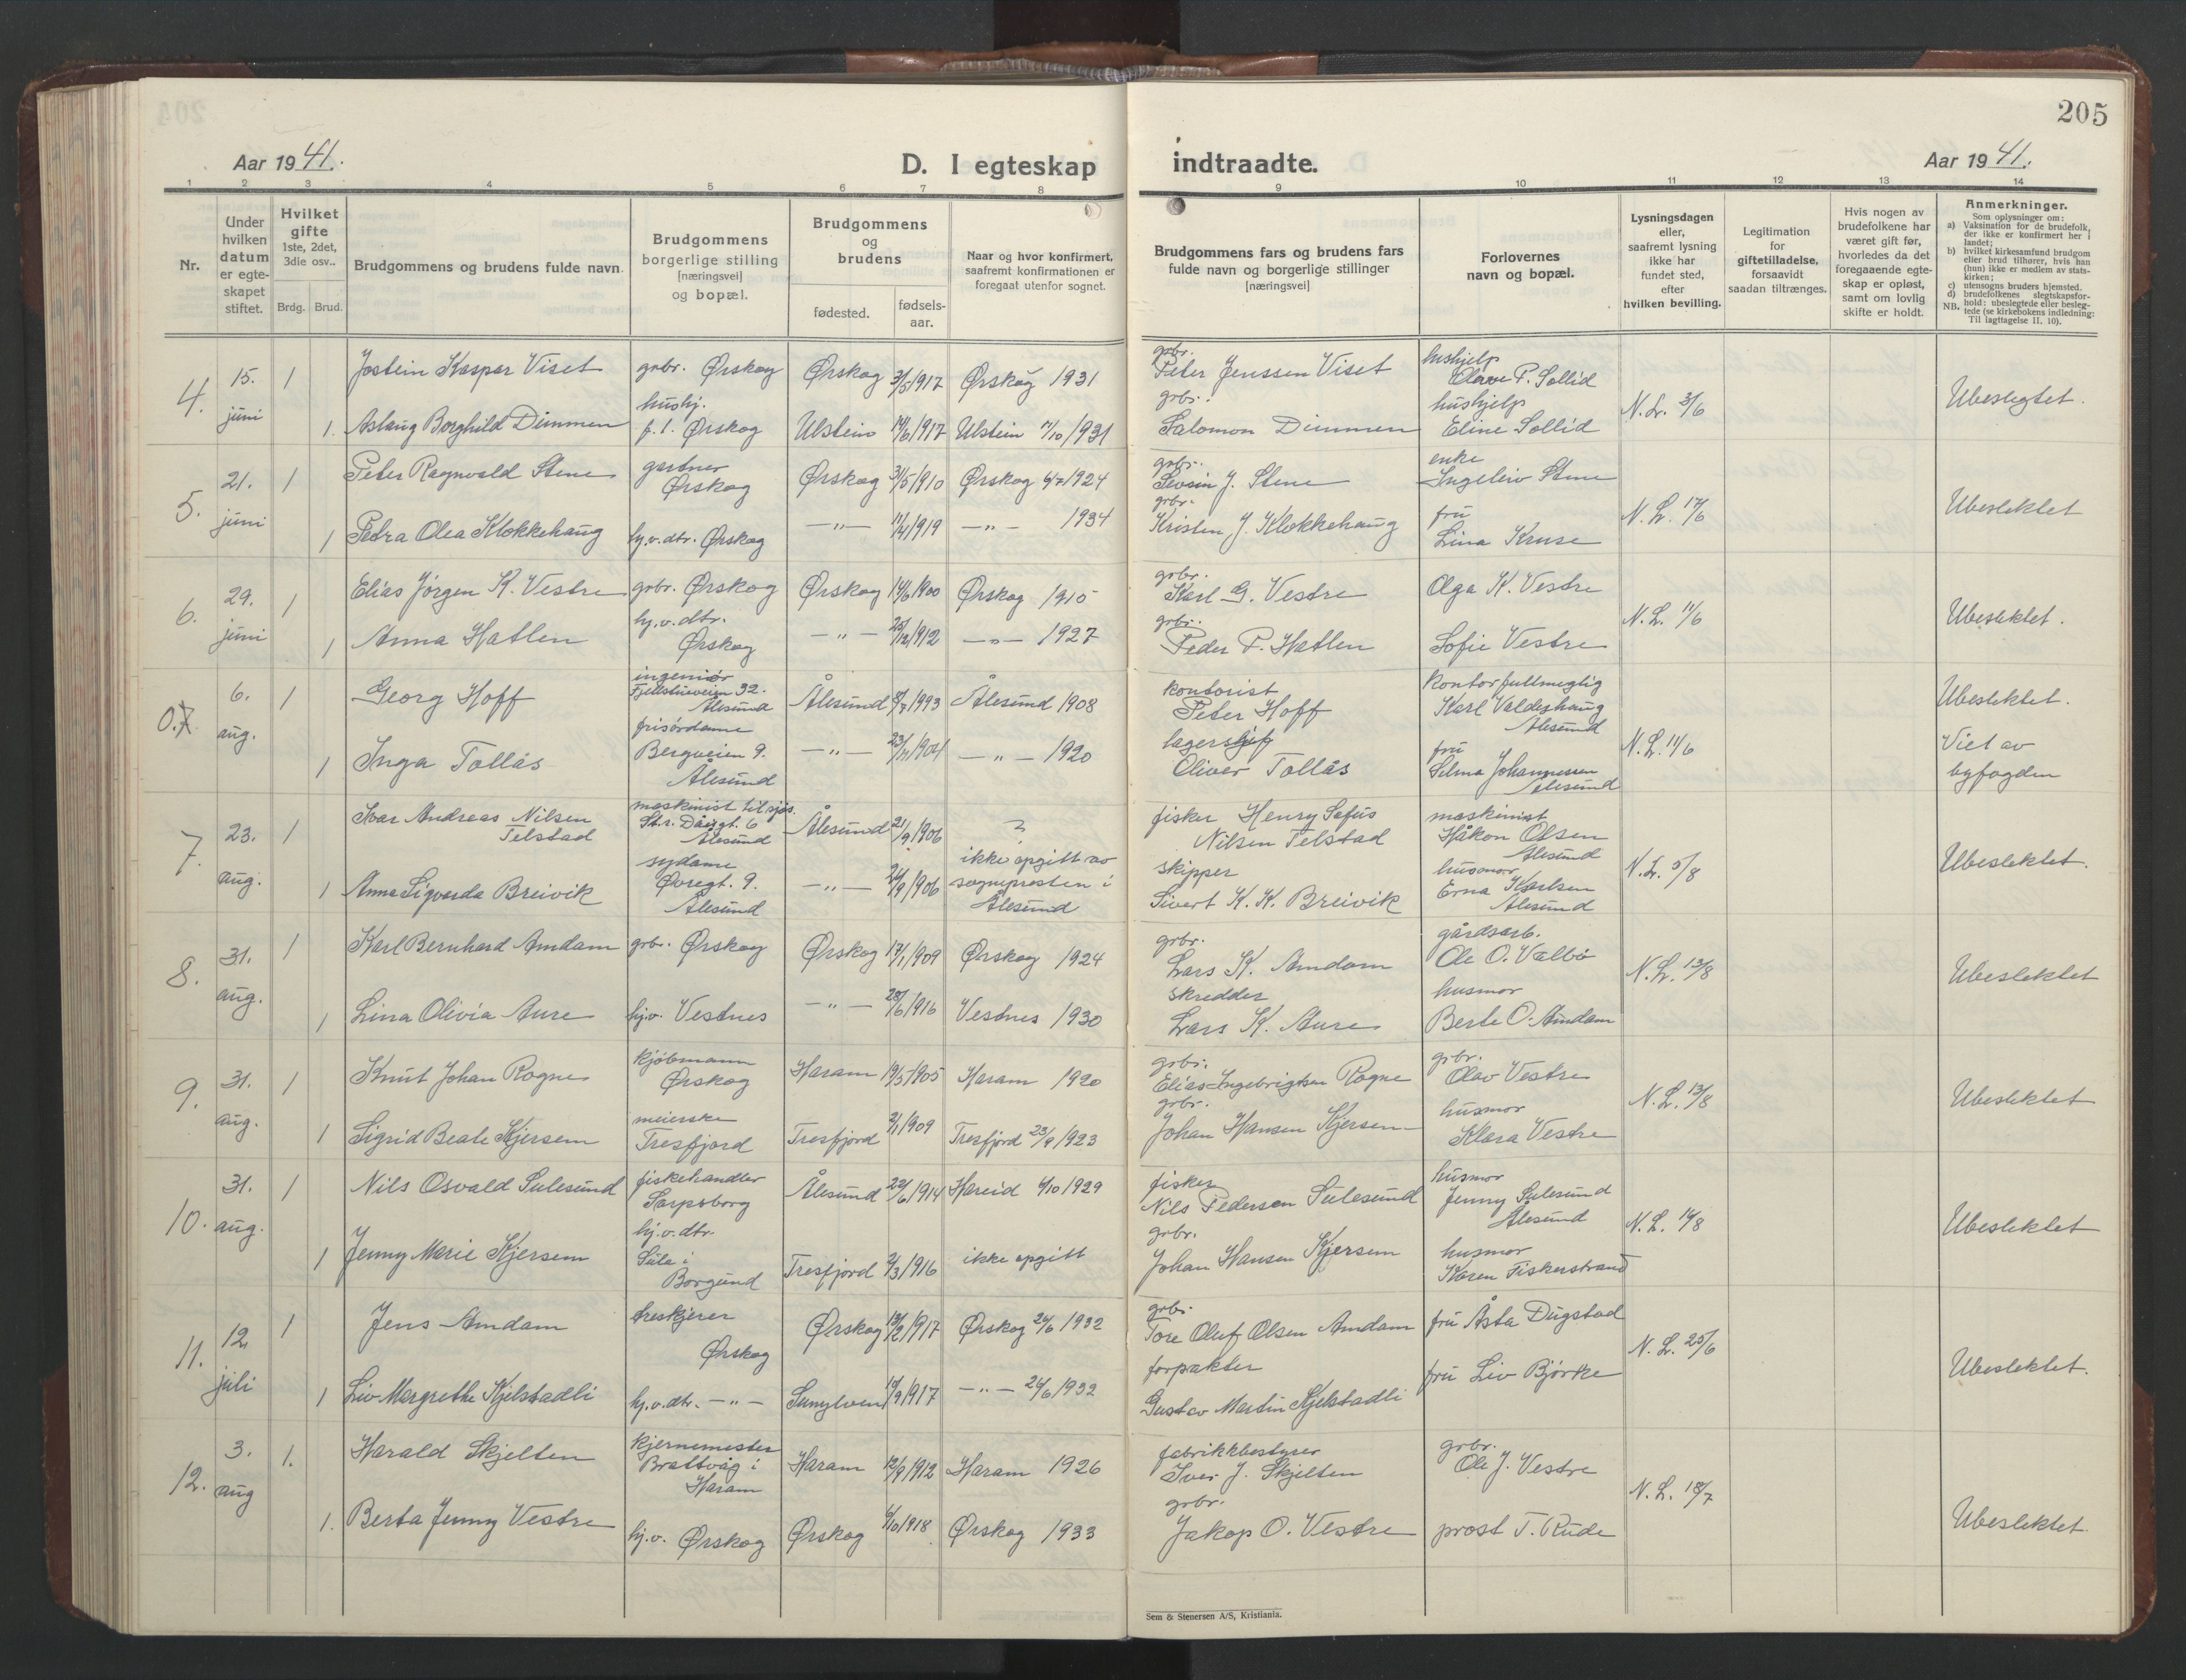 205
Aar 1941.
D. I egteskap
indtraadte.
Aar 1941.
1 2 3 4 5 6 7 8 9 10 11 12 13 14
Nr.
Under hvilken datum er egteskapet stiftet.
Hvilket gifte 1ste, 2det, 3die osv..
Brdg. Brud.
Brudgommens og brudens fulde navn.
Brudgommens borgerlige stilling [næringsvei] og bopæl.
Brudgommens og brudens
fødested.
fødsels-aar.
Naar og hvor konfirmert, saafremt konfirmationen er foregaat utenfor sognet.
Brudgommens fars og brudens fars fulde navn og borgerlige stillinger [næringsvei]
Forlovernes navn og bopæl.
Lysningsdagen eller, saafremt lysning ikke har fundet sted, efter hvilken bevilling.
Legitimation for giftetilladelse, forsaavidt saadan tiltrænges.
Hvis nogen av brudefolkene har været gift før, hvorledes da det foregaaende egteskap er opløst, samt om lovlig skifte er holdt.
Anmerkninger.
Som oplysninger om:
a) Vaksination for de brudefolk, der ikke er konfirmert her i landet;
b) hvilket kirkesamfund brudgom eller brud tilhører, hvis han (hun) ikke er medlem av statskirken;
c) utensogns bruders hjemsted.
d) brudefolkenes slegtskapsforhold: ubeslegtede eller beslegtede (se kirkebokens indledning: Til iagttagelse II. 10).
NB.
4. 15. juni 1 Jostein Kaspar Viset grbr. Ørskog Ørskog 3/5 1917 Ørskog 1931 grbr. Peter Jenssen Viset hushjelp P. Sollid N.L. 3/6 Ubeslegtet.
1. Aslaug Borghild Dimmen hushj. f.t. Ørskog Ulstein 1917 Ulstein 1931 grbr. Salomon Dimmen hushjelp Eline Sollid
5. 21. juni 1 Peter Ragnvald Stene gartner Ørskog Ørskog 31/5 1910 Ørskog 1924 grbr. J. Stene enke Ingeleiv Stene N.L. 17/6 Ubeslektet
1 Petra Olea Klokkehaug hj.v.dtr. Ørskog —"— 11/4 1919 —"— 1934 grbr. Kristen J. Klokkehaug fru Lina Kruse
6. 29. juni 1 Elias Jørgen K. Vestre grbr. Ørskog Ørskog 14/6 1900 Ørskog 1915 grbr. Karl G. Vestre Olga K. Vestre N.L. 11/6 Ubeslektet.
1 Anna Hatlen hj.v.dtr. Ørskog —"— 1912 —"— 1927 grbr. Peder P. Hatlen Sofie Vestre
0.7 6. aug. 1 Georg Hoff ingeniør Fjellstueveien 32. Ålesund Ålesund 1993 Ålesund 1908 kontorist Peter Hoff Kontorfullmegtig Karl Valdeshaug Ålesund N.L. 11/6 Ubeslektet.
1 Inga Tollås frisørdame Bergveien 9. Ålesund —"— 1904 —"— 1920 lagersjef Oliver Tollås fru Selma Johannessen Ålesund Viet av byfogden
7. 23. aug. 1 Ivar Andreas Nilsen Telstad maskinist til sjøs. St.r. Daaegt. 6 Ålesund Ålesund 21/9 1906 ? fisker Henry Sofus Nilsen Telstad maskinist Håkon Olsen Ålesund N.L. 5/8 Ubeslektet.
1 Anna Sigvarda Breivik sydame Øvregt. 9. Ålesund —"— 1906 ikke opgitt av sognepresten i Ålesund skipper Sivert K. K. Breivik husmor Erna Karlsen Ålesund
8. 31. aug. 1 Karl Bernhard Amdam grbr. Ørskog Ørskog 17/1 1909 Ørskog 1924 grbr. Lars K. Amdam gårdsarb. Ole O. Valbø N.L. 13/8 Ubeslektet
1 Lina Olivia Aure hj.v. Vestnes —"— 1916 Vestnes 1930 skredder Lars K. Aure husmor Berte O. Amdam
9. 31. aug. 1 Knut Johan Rogne kjøbmann Ørskog Haram 19/5 1905 Haram 1920 grbr. Elias Ingebrigtsen Rogne grbr. Olav Vestre N.L. 13/8 Ubeslektet
1 Sigrid Beate Kjersem meierske Tresfjord Tresfjord 2/1 1909 Tresfjord 23/9 1923 grbr. Johan Hansen Kjersem husmor Klara Vestre
10. 31. aug. 1 Nils Osvald Sulesund fiskehandler Sarpsborg Ålesund 22/6 1914 Hareid 6/10 1929 fisker Nils Pedersen Sulesund husmor Jenny Sulesund Ålesund N.L. 14/8 Ubeslektet
1 Jenny Marie Kjersem hj.v.dtr. Sula i Borgund Tresfjord 2/3 1916 ikke opgitt grbr. Johan Hansen Kjersem husmor Karen Fiskerstrand
11. 12. juli 1 Jens Amdam treskjerer Ørskog Ørskog 1917 Ørskog 26/6 1932 grbr. Tore Oluf Olsen Amdam fru Åsta Dugstad N.L. 25/6 Ubeslektet.
1 Liv Margrethe Kjelstadli hj.v.dtr. —"— Sunnylven 1917 —"— 26/6 1932 forpakter Gustav Martin Kjelstadli fru Liv Bjørke
12. 3. aug 1. Harald Skjelten kjernemester Brattvåg i Haram Haram 12/9 1912 Haram 1926 fabrikkbestyrer Iver J. Skjelten grbr. Ole J. Vestre N.L. 18/7 Ubeslektet.
1. Berta Jenny Vestre hj.v. Ørskog Ørskog 6/10 1918 Ørskog 1933 grbr. Jakop O. Vestre prost T. Rude
Sem & Stenersen A/S, Kristiania.